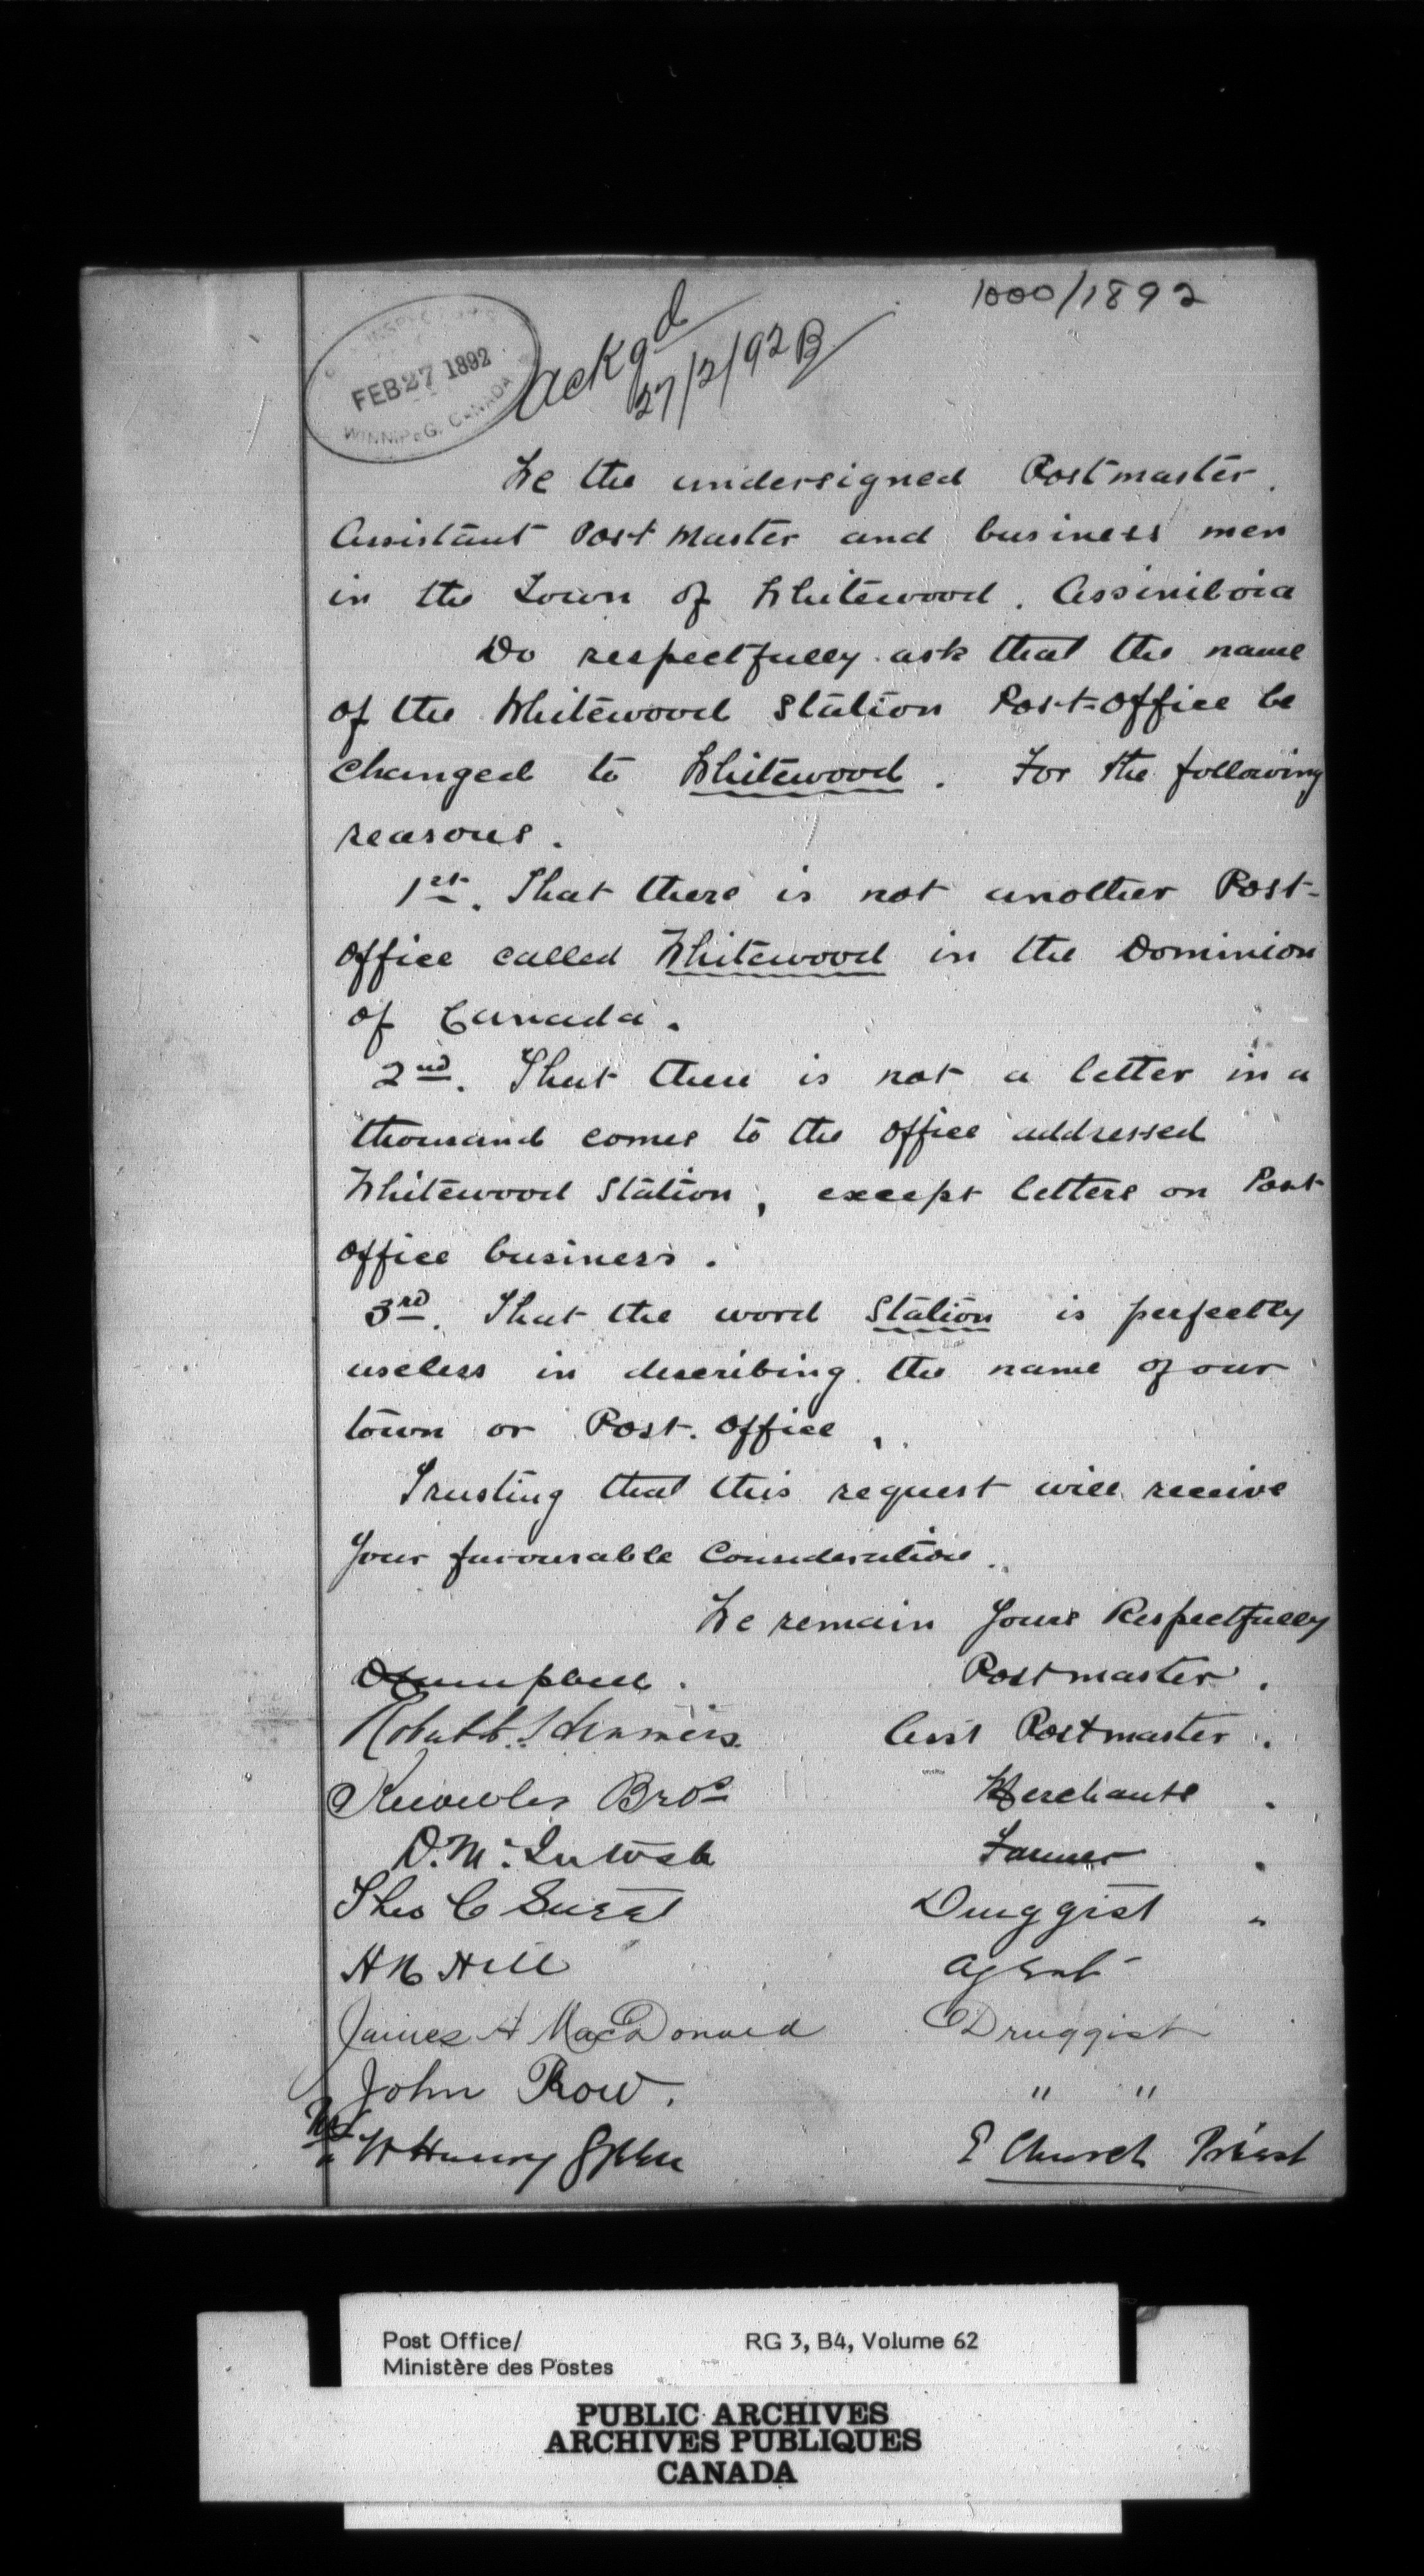 1000/1892
FEB 27 1892
WINNIPEG. CANADA
Ackgd
27/2/92 B
We the undersigned Postmaster.
Assistant Post Master and business men
in the Town of Whitewood. Assiniboia
Do respectfully ask that the name
of the Whitewood Station Post-Office be
changed to Whitewood. For the following
reasons.
1st. That there is not another Post-
Office called Whitewood in the Dominion
of Canada.
2nd. That there is not a letter in a
thousand comes to the office addressed
Whitewood Station, except letters on Post
Office business.
3rd. That the word Station is perfectly
useless in describing the name of our
town or Post. Office.
Trusting that this request will receive
Your favourable Consideration.
We remain Yours Respectfully
Campbell. Postmaster.
Asst Postmaster.
Knowles Bros Merchants.
D. McIntosh Farmer.
Theo C Druggist "
H Hill Agent
James A MacDonald Druggist
John Row. " "
W Henry E Church Priest
Post Office/ RG 3, B4, Volume 62
Ministère des Postes
PUBLIC ARCHIVES
ARCHIVES PUBLIQUES
CANADA